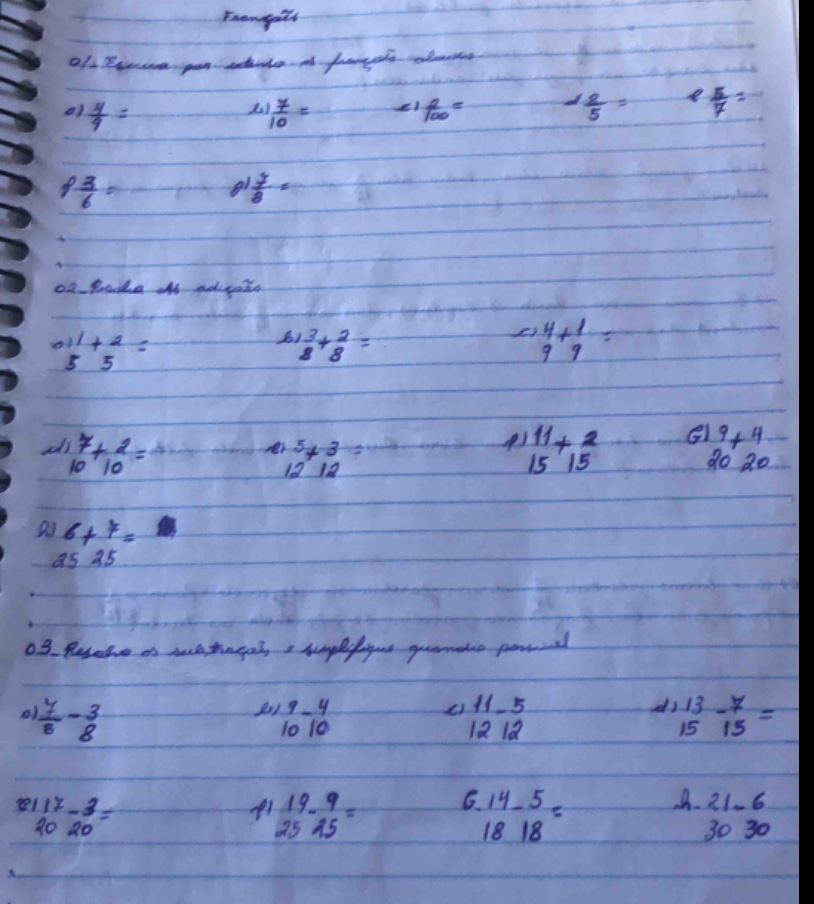 Françaõs
01- Escreva por extenso as françaõs abaixo.
a) 4/9 = b) 7/10 = c) 2/100 = d 2/5 = e 5/7 =
f 3/6 = g) 7/8 =
02- as adiçaõs
a) 1/5 + 2/5 = b) 3/8 + 2/8 = c) 4/9 + 1/9 =
d) 7/10 + 2/10 = e) 5/12 + 3/12 = f) 11/15 + 2/15 G) 9/20 + 4/20
h) 6/25 + 7/25 =
03- Resolva as subtraçoẽs e simplifique quando possivel
a) 7/8 - 3/8 b) 9/10 - 4/10 c) 11/12 - 5/12 d) 13/15 - 7/15 =
e) 17/20 - 3/20 = f) 19/25 - 9/25 = G- 14/18 - 5/18 = h- 21/30 - 6/30